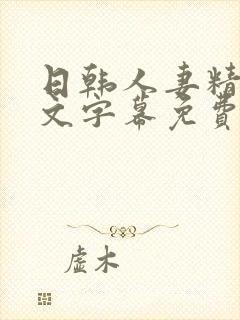 日韩人妻精
文字幕免费
虚木